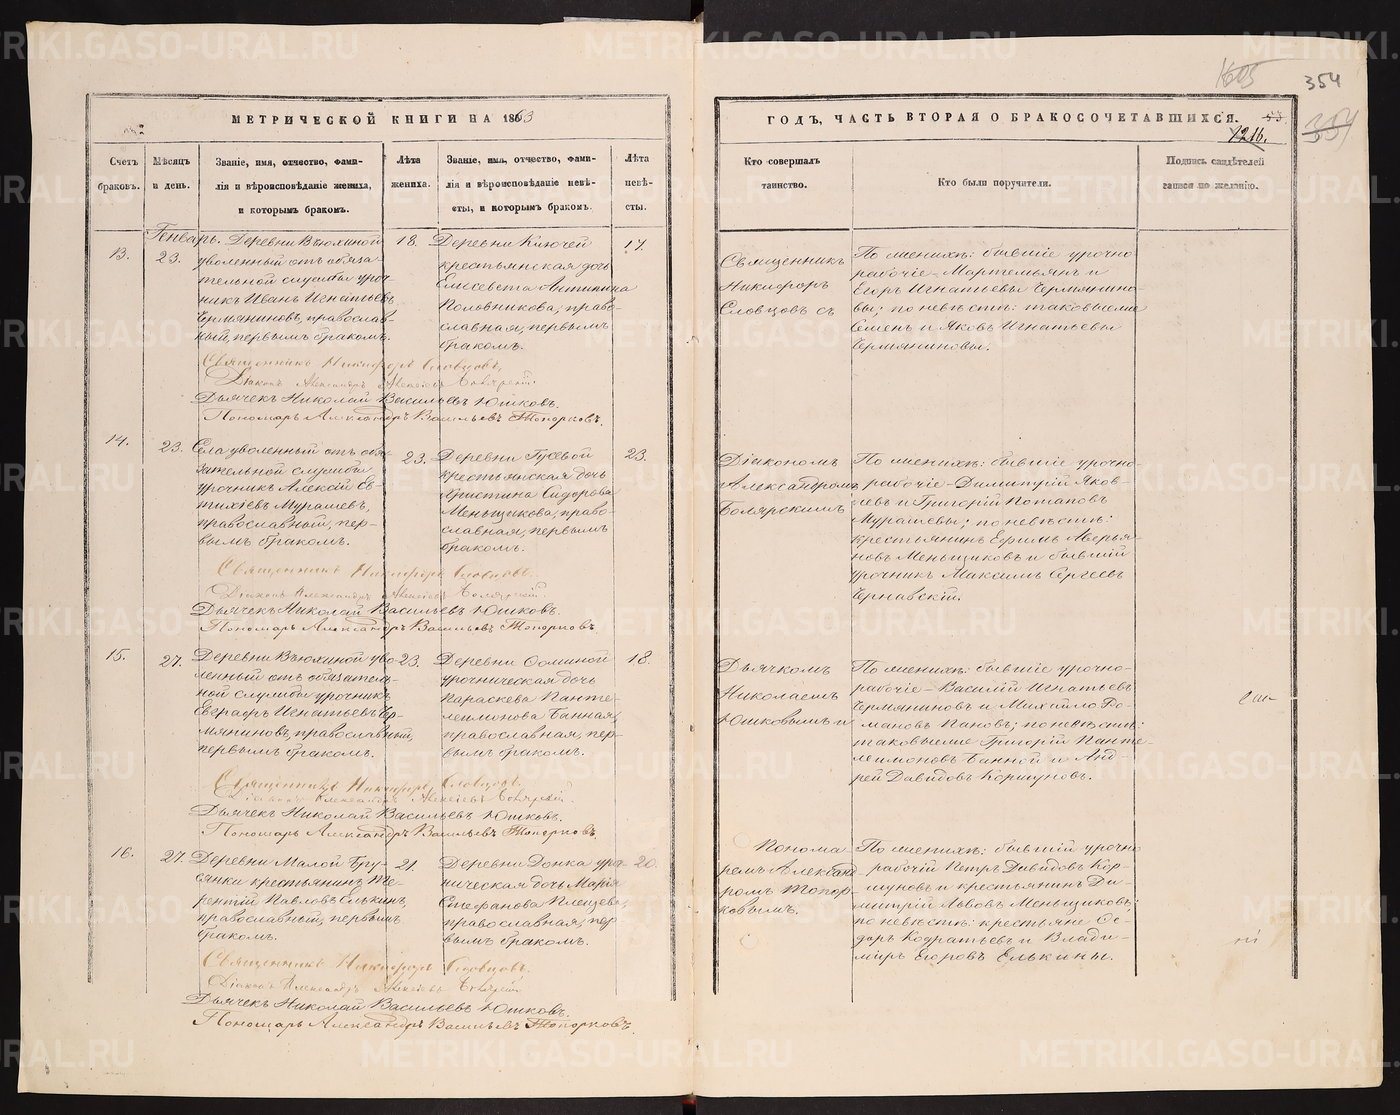 1605
354
МЕТРИЧЕСКОЙ КНИГИ НА 1863
ГОДЪ, ЧАСТЬ ВТОРАЯ О БРАКОСОЧЕТАВШИХСЯ.
53
1216.
354
Счетъ браковъ.
Мѣсяцъ и день.
Званіе, имя, отчество, фами-
лія и вѣроисповѣданіе жениха,
и которымъ бракомъ.
Лѣта жениха.
Званіе, имя, отчество, фами-
лія и вѣроисповѣданіе невѣ-
сты, и которымъ бракомъ.
Лѣта невѣ-
сты.
Кто совершалъ
таинство.
Кто были поручители.
Подпись свидѣтелей
записи по желанію.
13.
Генварь.
23.
Деревни Вьюхиной
уволенный отъ обяза-
тельной службы уроч-
никъ Иванъ Игнатьевъ
Чермяниновъ, православ-
ный, первымъ бракомъ.
18.
Деревни Ключей
крестьянская дочь
Елисевета Антипина
Половникова, право-
славная, первымъ
бракомъ.
17.
Священникъ
Никифоръ
Словцовъ съ
По женихѣ: бывшіе урочно
рабочіе – Мартемьянъ и
Егоръ Игнатьевы Чермянино-
вы; по невѣстѣ: таковыеже
Семенъ и Яковъ Игнатьевы
Чермяниновы.
Священникъ Никифоръ Словцовъ.
Діаконъ Александръ Алексѣевъ Боярскій.
Дьячекъ Николай Васильевъ Юшковъ.
Пономарь Александръ Васильевъ Топорковъ.
14.
23.
Села уволенный отъ обя-
зательной службы
урочникъ Алексій Ев-
тихіевъ Мурашевъ,
православный, пер-
вымъ бракомъ.
23.
Деревни Гусевой
крестьянская дочь
Христина Сидорова
Меньщикова, право-
славная, первымъ
бракомъ.
23.
Діакономъ
Александромъ
Боярскимъ
По женихѣ: бывшіе урочно-
рабочіе – Димитрій Яков-
левъ и Григорій Потаповъ
Мурашевы; по невѣстѣ:
крестьянинъ Ефимъ Аверья-
новъ Меньщиковъ и бывшій
урочникъ Максимъ Сергеевъ
Чернавскій.
Священникъ Никифоръ Словцовъ.
Діаконъ Александръ Алексѣевъ Боярскій.
Дьячекъ Николай Васильевъ Юшковъ.
Пономарь Александръ Васильевъ Топорковъ.
15.
27.
Деревни Вьюхиной уво-
ленный отъ обязатель-
ной службы урочникъ
Евграфъ Игнатьевъ Чер-
мяниновъ, православный,
первымъ бракомъ.
23.
Деревни Фоминой
урочническая дочь
Параскева Панте-
леимонова Банная,
православная, пер-
вымъ бракомъ.
18.
Дьячкомъ
Николаемъ
Юшковымъ и
По женихѣ: бывшіе урочно-
рабочіе – Василій Игнатьевъ
Чермяниновъ и Михайло Ро-
мановъ Пановъ; по невѣстѣ:
таковыеже Григорій Панте-
леимоновъ Банной и Анд-
рей Давидовъ Коршуновъ.
Священникъ Никифоръ Словцовъ.
Діаконъ Александръ Алексѣевъ Боярскій.
Дьячекъ Николай Васильевъ Юшковъ.
Пономарь Александръ Васильевъ Топорковъ.
16.
27.
Деревни Малой Бру-
сянки крестьянинъ Те-
рентій Павловъ Елькинъ,
православный, первымъ
бракомъ.
21.
Деревни Донка уроч-
ническая дочь Марія
Стефанова Плещева,
православная, пер-
вымъ бракомъ.
20.
Понома
ремъ Александ-
ромъ Топор-
ковымъ.
По женихѣ: бывшій урочно
рабочій Петръ Давидовъ Кор-
шуновъ и крестьянинъ Ди-
митрій Львовъ Меньщиковъ;
по невѣстѣ: крестьяне Фе-
доръ Кодратьевъ и Влади-
миръ Егоровъ Елькины.
Священникъ Никифоръ Словцовъ.
Діаконъ Александръ Алексѣевъ Боярскій
Дьячекъ Николай Васильевъ Юшковъ.
Пономарь Александръ Васильевъ Топорковъ.
METRIKI.GASO-URAL.RU